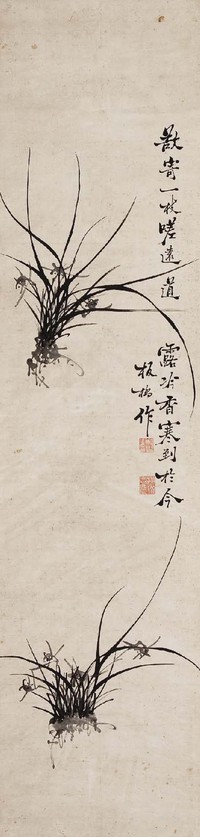 欲寄一枝嗟遠道 露冷香寒到於今
板橋作